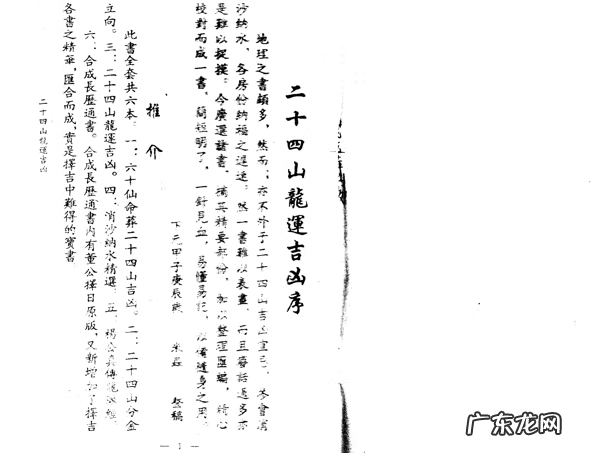 二十四山龍運吉凶序
地理之書頗多，然而，亦不外于二十四山吉凶宜忌、
沙納水、各房份納福之遲速。然一書難以表盡，而且
是難以捉摸。今廣選諸書，摘其精要部份，加以整理匯編，精心
校對而成一書，簡短明了，一針見血，易懂易記，以備隨身之用。
下元甲子庚辰歲 整稿
推介
此書全套共六本。一：六十仙命葬二十四山吉凶。二：二十四山分金
立向。三：二十四山龍運吉凶。四：消沙納水精選。五：楊公真傳
六：合成長歷通書。合成長歷通書內有董公擇日原版，又新增加了擇吉
各書之精華，匯合而成，實是擇吉中難得的寶書
二十四山龍運吉凶
— 1 —
广东龙网